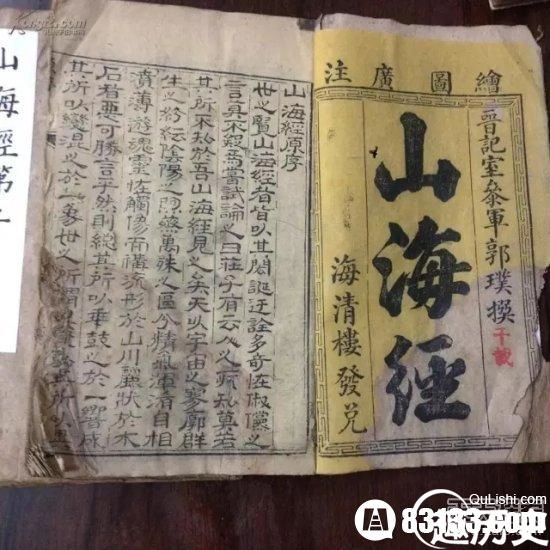 繪圖廣注
晉記室叅軍郭璞撰
千載
山海經
海清樓發兌
山海經原序
世之覽山海經者皆以其閎誕迂誇多奇怪俶儻之
言莫不疑焉嘗試論之曰莊子有云人之所知莫若
其所不知於吾山海經見之矣夫以宇宙之寥廓群
生之紛紜陰陽之煦蒸萬殊之區分精氣渾淆自相
濆薄遊魂靈怪觸像而構流形於山川麗狀於木
石者惡可勝言乎然則總其所以乖鼓之於一響成
其所以變混之於一象世之所謂異
山海經第
QuLishi.com
83133.com
趣历史